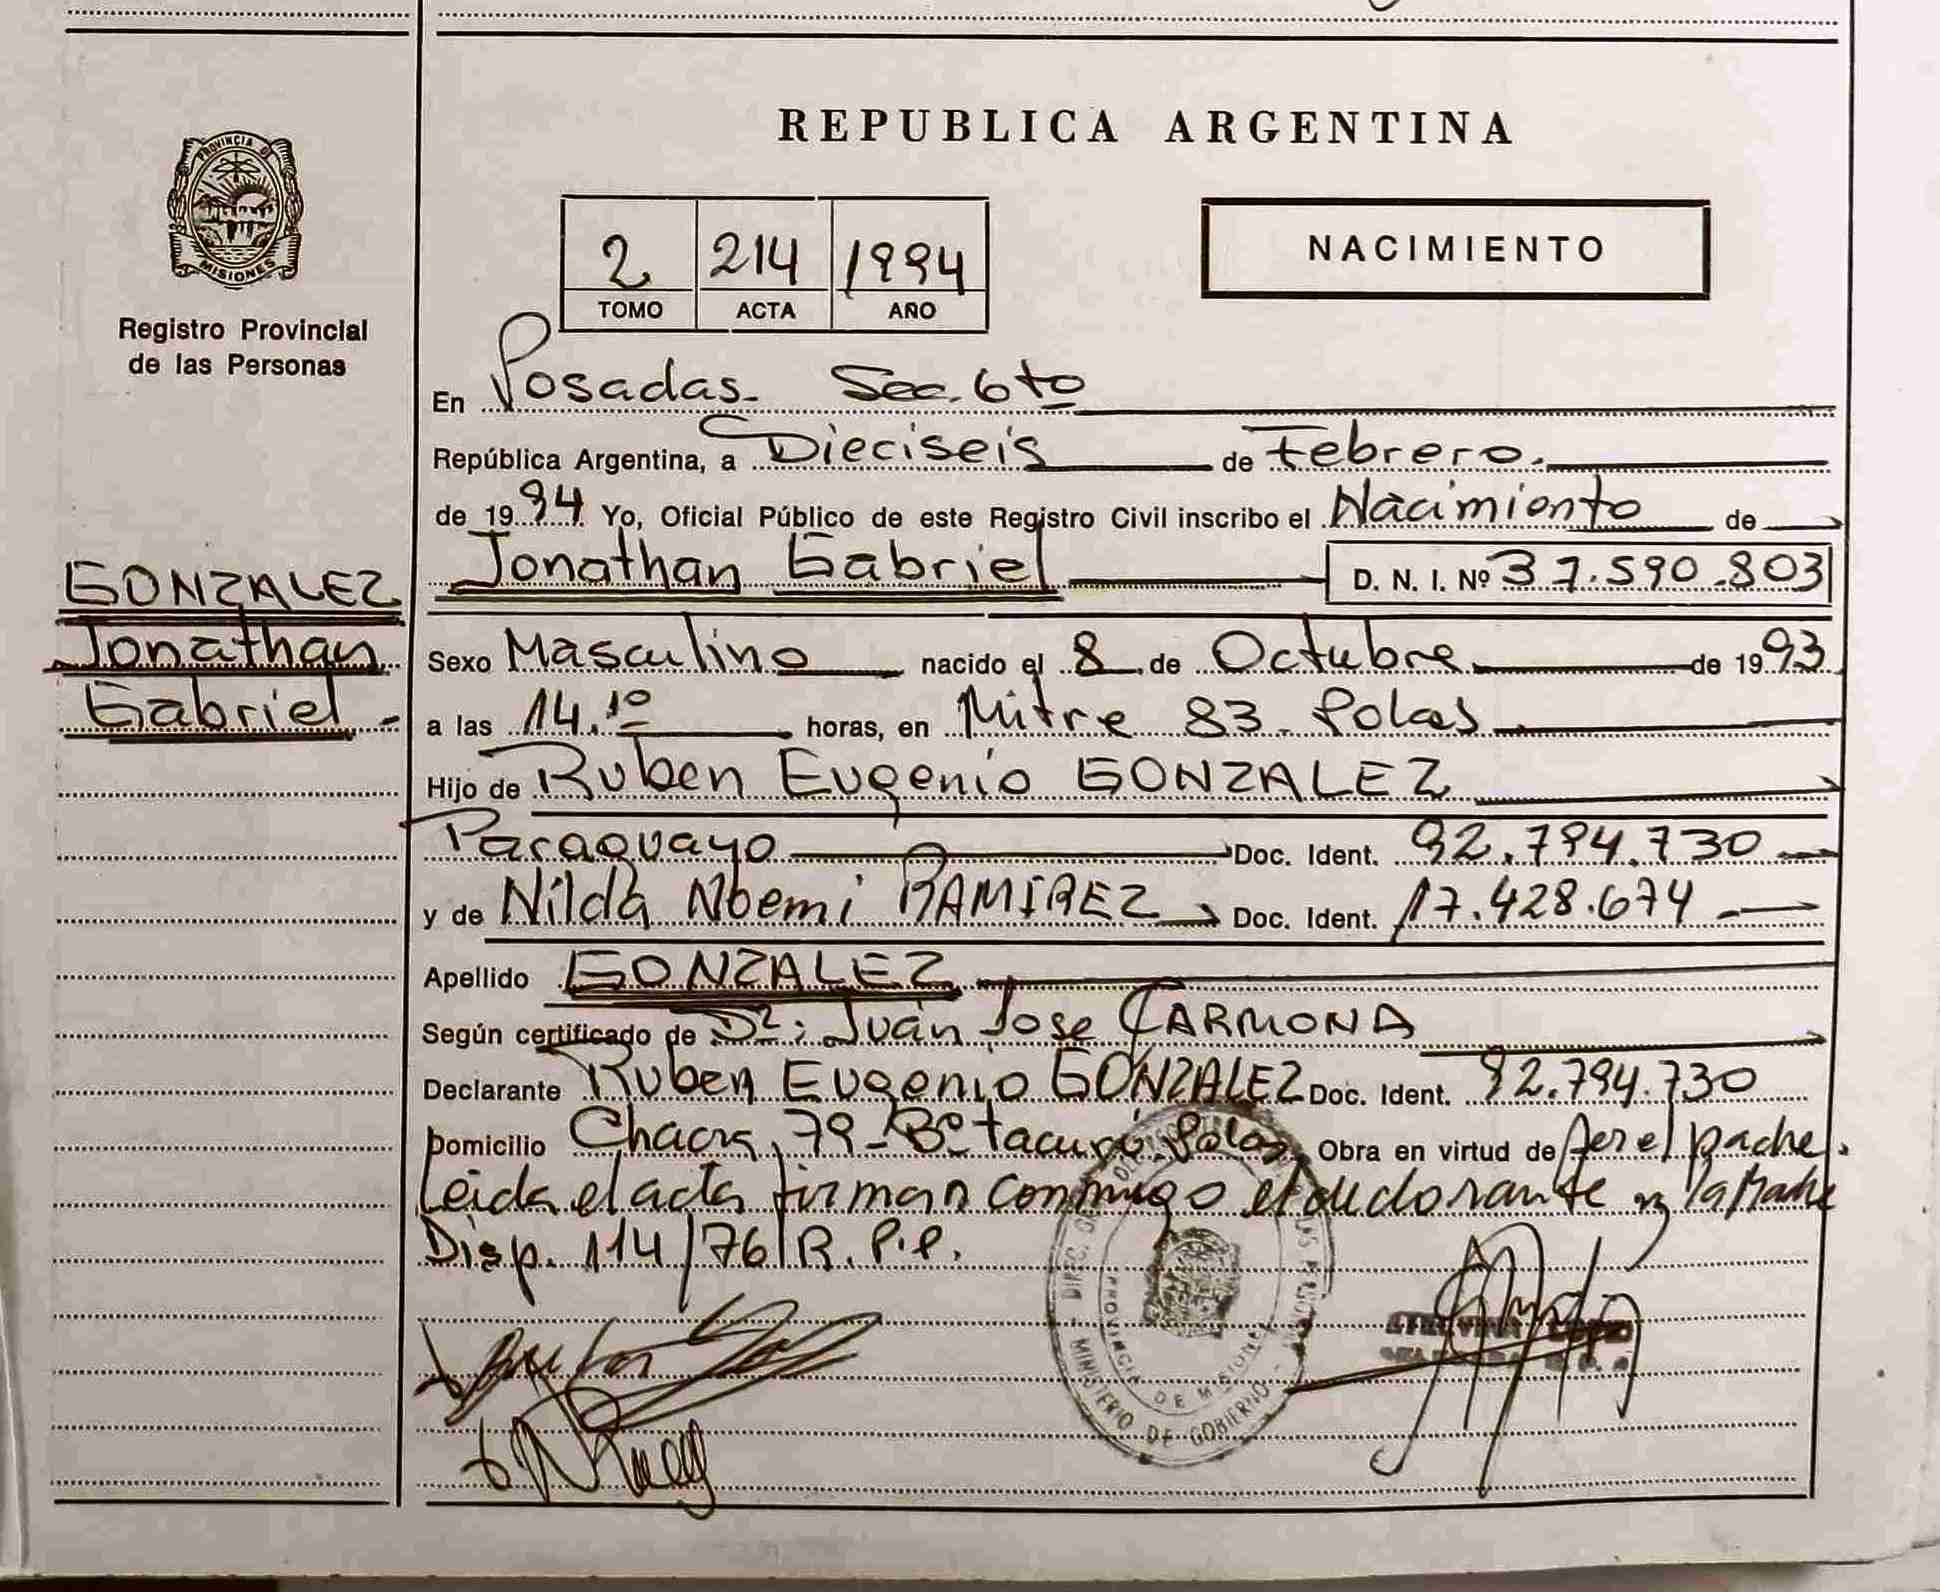 REPUBLICA ARGENTINA
PROVINCIA DE
MISIONES
Registro Provincial
de las Personas
2 214 1994
TOMO ACTA AÑO
NACIMIENTO
En Posadas. Sec. 6to
República Argentina, a Dieciseis de Febrero.
de 1994 Yo, Oficial Público de este Registro Civil inscribo el Nacimiento de
Jonathan Gabriel D. N. I. Nº 37.590.803
GONZALEZ
Jonathan
Gabriel
Sexo Masculino nacido el 8 de Octubre de 1993
a las 14.10 horas, en Mitre 83. Pdas
Hijo de Ruben Eugenio GONZALEZ
Paraguayo Doc. Ident. 92.794.730
y de Nilda Noemi RAMIREZ Doc. Ident. 17.428.674
Apellido GONZALEZ
Según certificado de Dr: Juan Jose CARMONA
Declarante Ruben Eugenio GONZALEZ Doc. Ident. 92.794.730
Domicilio Chacra 79-Bº Tacurú. Pdas Obra en virtud de ser el padre.
Leida el acta firman conmigo el declarante y la Madre
Disp. 114/76 R.P.P.
PROVINCIA DE MISIONES
MINISTERIO DE GOBIERNO